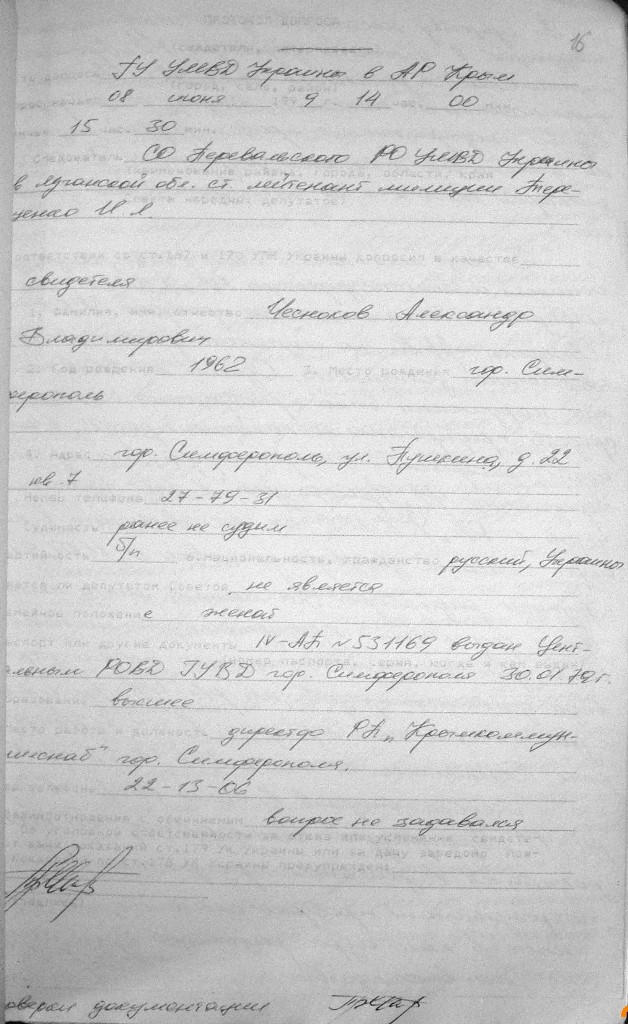 ПРОТОКОЛ ДОПРОСА
16
(свидетеля,
ГУ УМВД Украины в АР Крым
(город, село, район)
08 июня 199 9 г. 14 час. 00 мин.
15 час. 30 мин.
Следователь СО Перевальского РО УМВД Украины
в Луганской обл. ст. лейтенант милиции
И.Я.
ответствии со ст.167 и 170 УПК Украины допросил в качестве
свидетеля
1. Фамилия, имя, отчество Чесноков Александр
Владимирович
2. Год рождения 1962 3. Место рождения гор. Сим-
ферополь
4. Адрес гор. Симферополь, ул. Пушкина, д. 22
кв. 7
Номер телефона 27-79-31
Судимость ранее не судим
партийность б/п 6. Национальность, гражданство русский, Украины
яется ли депутатом Советов не является
семейное положение женат
паспорт или другие документы IV-АП №531169 выдан Цент-
альным РОВД ГУВД гор. Симферополя 30.01.79г.
образование высшее
место работы и должность директор РП "Крымкоммун-
снаб" гор. Симферополя.
телефон 22-13-06
взаимоотношения с обвиняемым вопрос не задавался
Об уголовной ответственности за отказ или уклонение свидете-
от дачи показаний ст.179 УК Украины или за дачу заведомо лож-
показаний по ст.178 УК Украины предупрежден:
документации